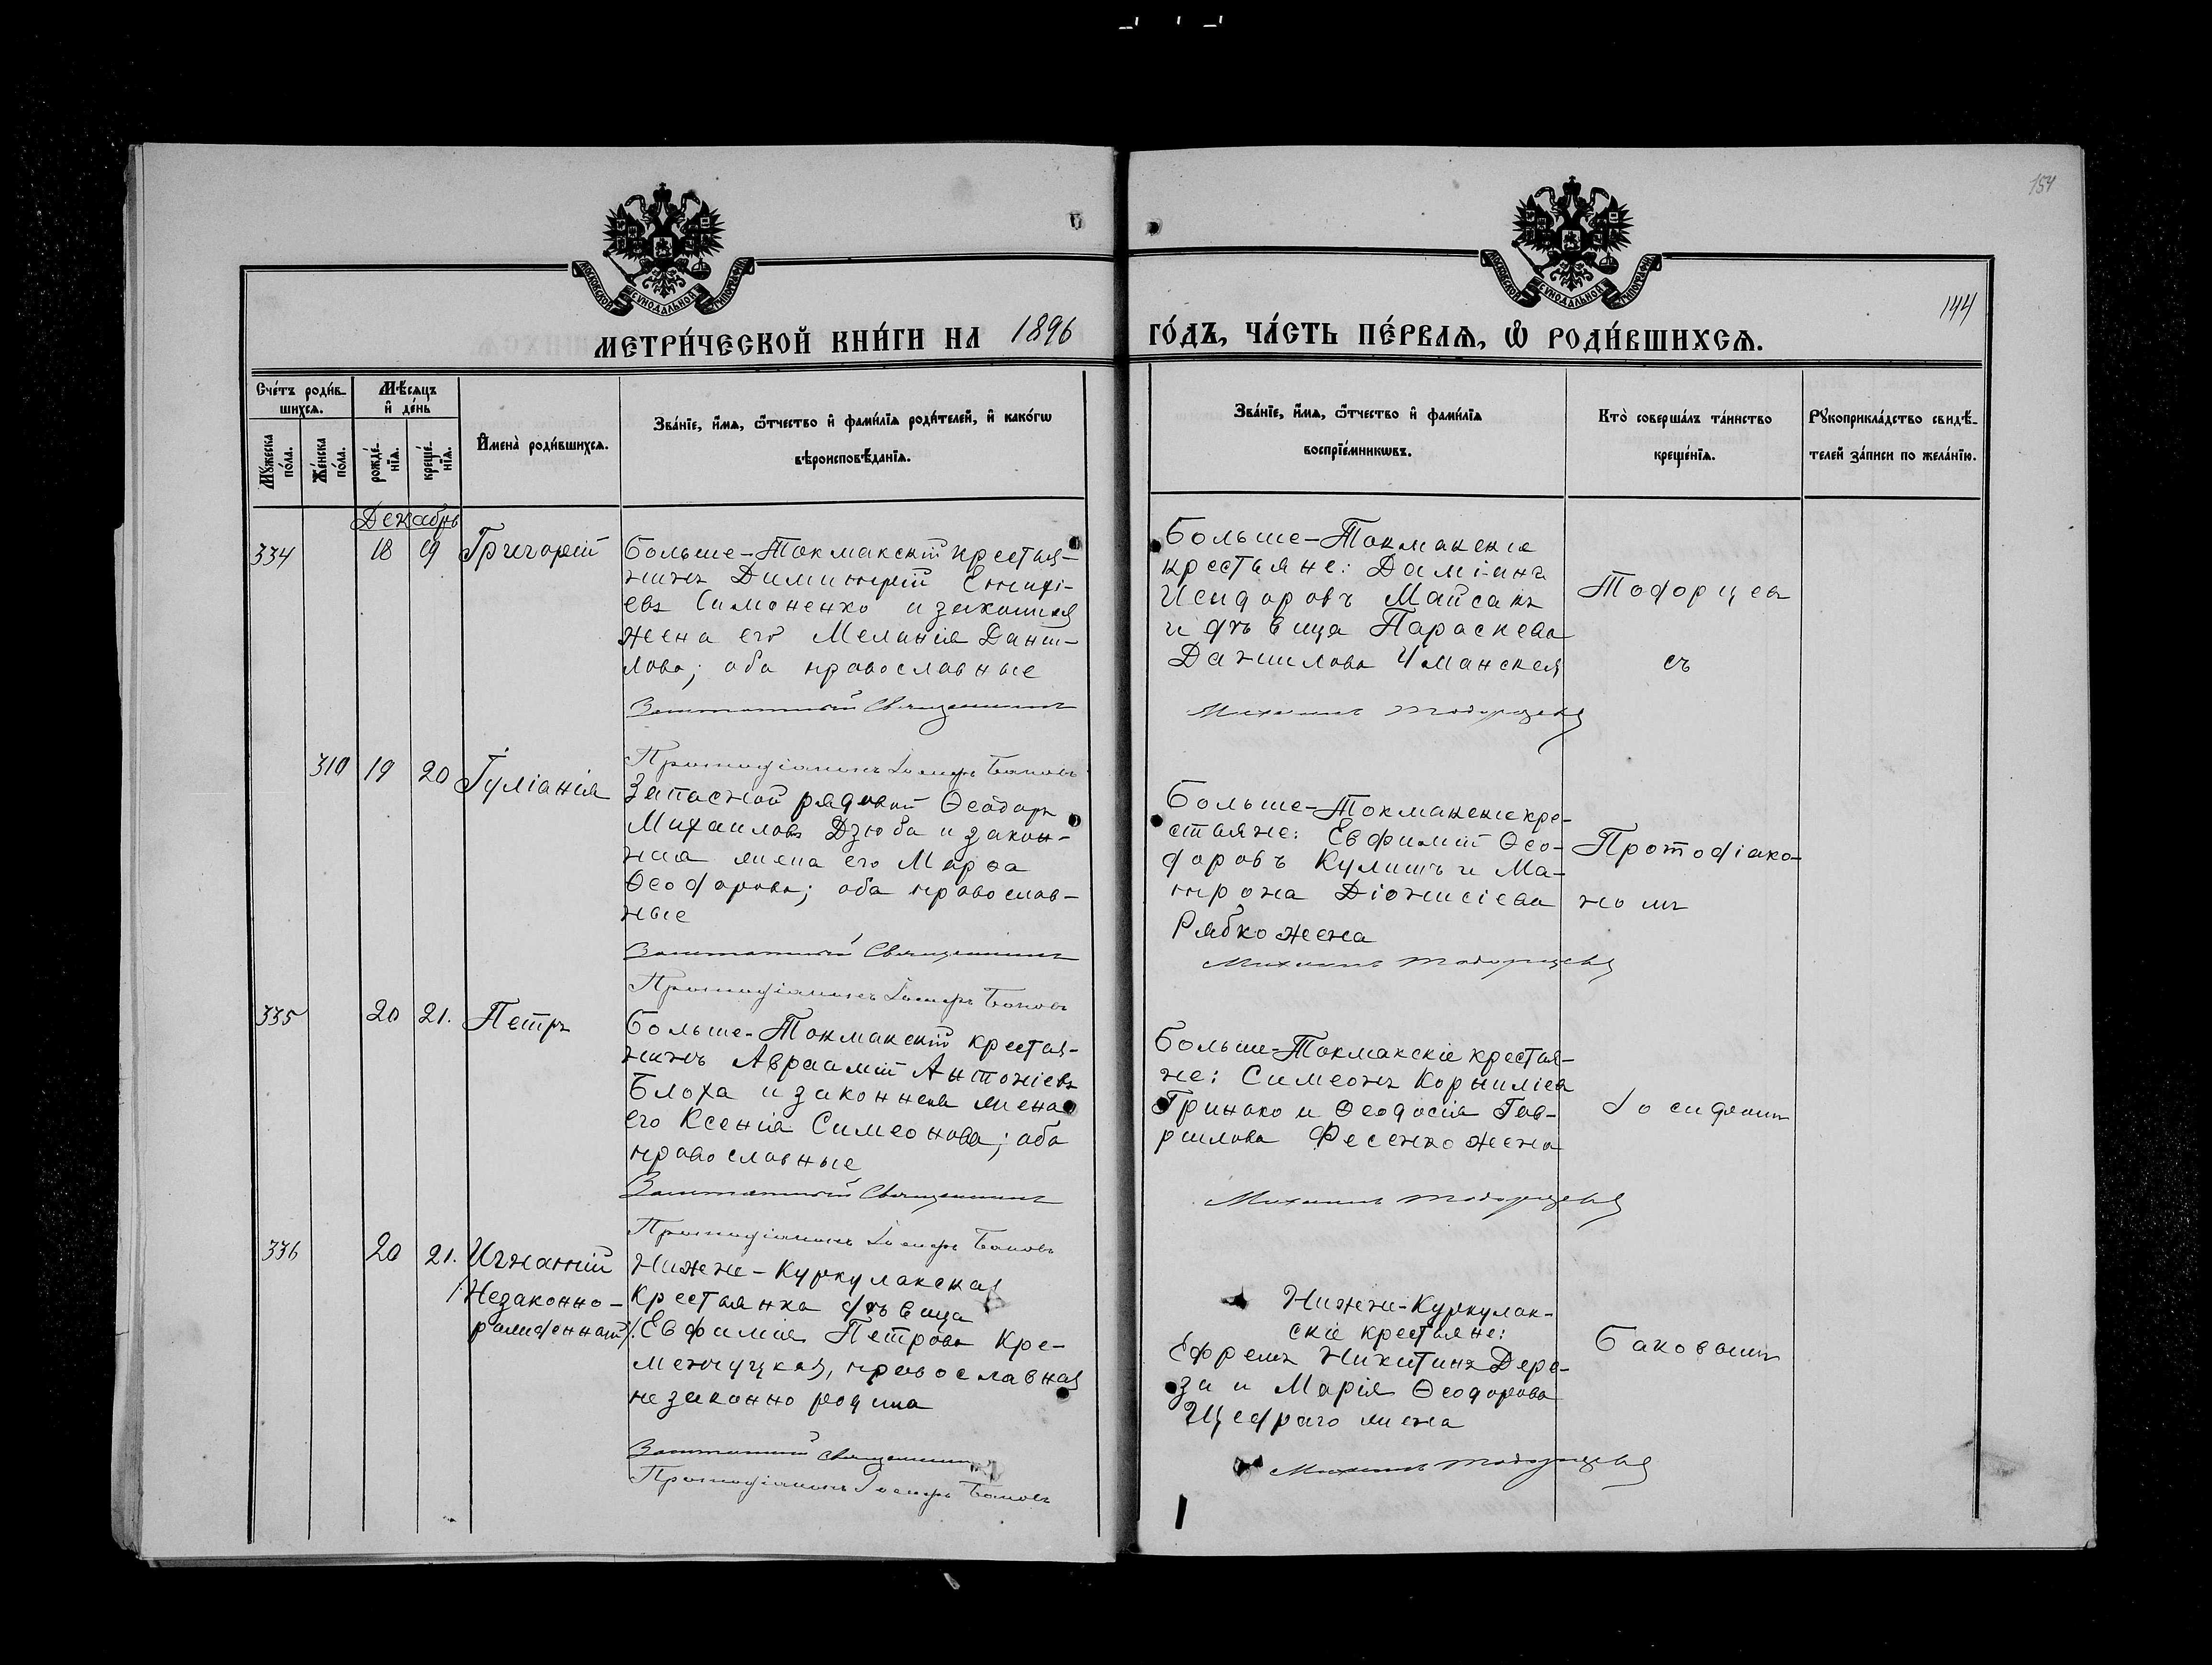 154
МОСКОВСКОЙ СѴНОДАЛЬНОЙ ТИПОГРАФІИ
МОСКОВСКОЙ СѴНОДАЛЬНОЙ ТИПОГРАФІИ
144
МЕТРИ́ЧЕСКОЙ КНИ́ГИ НА 1896
ГО́ДЪ, ЧА́СТЬ ПЕ́РВАѦ, Ѡ҆ РОДИ́ВШИХСѦ.
Сче́тъ роди́в-
шихсѧ.
Мѣ́сѧцъ
и҆ де́нь
Мꙋ́жеска
по́ла.
Же́нска
по́ла.
рожде́-
нїѧ.
креще́-
нїѧ.
И҆мена̀ роди́вшихсѧ.
Зва́нїе, и҆́мѧ, ѻ҆́тчество и҆ фами́лїѧ роди́телей, и҆ како́гѡ
вѣроисповѣ́данїѧ.
Зва́нїе, и҆́мѧ, ѻ҆́тчество и҆ фами́лїѧ
воспрїе́мникѡвъ.
Кто̀ соверша́лъ та́инство
креще́нїѧ.
Рꙋкоприкла́дство свидѣ́-
телей за́писи по жела́нїю.
Декабрь
334 18 19 Григорій
Больше-Токмакскій крестья-
нинъ Димитрій
евъ Симоненко и законная
жена его Меланія Дани-
лова; оба православные
Заштатный Священникъ
Протодіаконъ Іосифъ Баковъ
Больше-Токмакскіе
крестьяне: Даміанъ
Исидоровъ Майсакъ
и дѣвица Параскева
Данилова Уманская
Михаилъ Тодорцевъ
Тодорцев
съ
310 19 20 Іуліанія
Запасной рядовой Ѳеодоръ
Михаиловъ Дзюба и закон-
ная жена его Марѳа
Ѳеодорова; оба православ-
ные
Заштатный Священникъ
Протодіаконъ Іосифъ Баковъ
Больше-Токмакскіе кре-
стьяне: Евфимій Ѳео-
доровъ Кулишъ и Ма-
трона Діонисіева
Рябко жена
Михаилъ Тодорцевъ
Протодіако-
номъ
335 20 21. Петръ
Больше-Токмакскій крестья-
нинъ Авраамій Антоніевъ
Блоха и законная жена
его Ксенія Симеонова; оба
православные
Заштатный Священникъ
Протодіаконъ Іосифъ Баковъ
Больше-Токмакскіе крестья-
не: Симеонъ Корниліев
Гринако и Ѳеодосія Гав-
рилова Фесенко жена
Михаилъ Тодорцевъ
Іосифомъ
336 20 21. Игнатій
/Незаконно-
рожденный/.
Нижне-Куркулакская
крестьянка дѣвица
Евфимія Петрова Кре-
менчуцкая, православная
незаконно родила
Заштатный Священникъ
Протодіаконъ Іосифъ Баковъ
Нижне-Куркулак-
скіе крестьяне:
Ефремъ Никитинъ Дере-
за и Марія Ѳеодорова
Щедраго жена
Михаилъ Тодорцевъ
Баковымъ